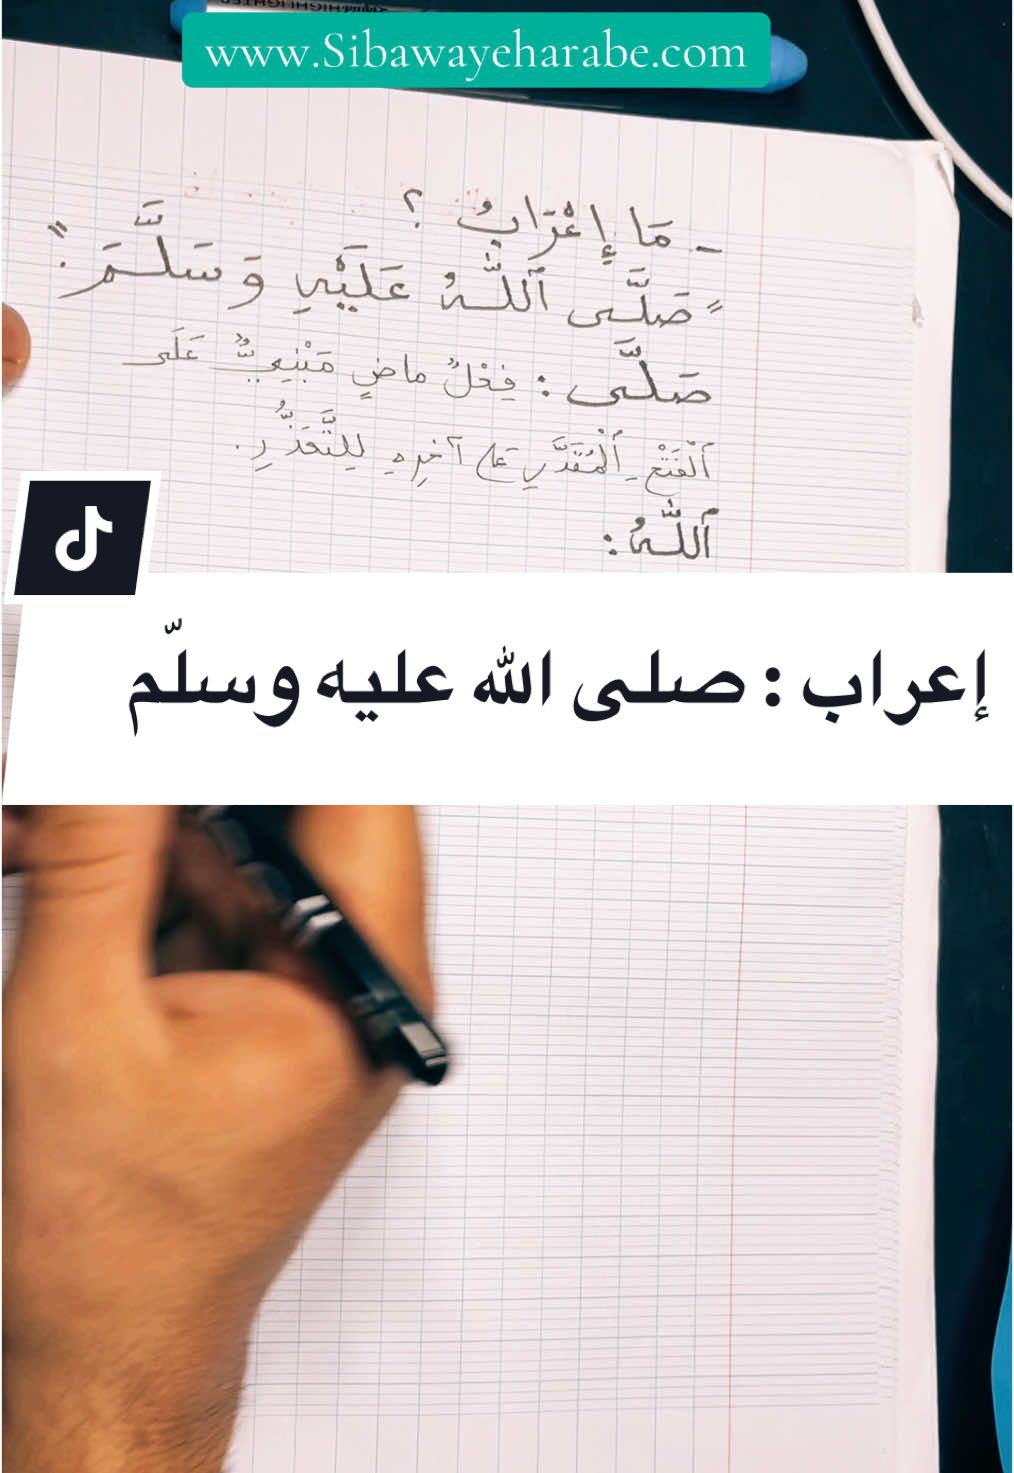 www.Sibawayeharabe.com
- مَا إِعْرَابُ ؟
"صَلَّى ٱللَّهُ عَلَيْهِ وَسَلَّمَ".
صَلَّى : فِعْلٌ ماضٍ مَبْنِيٌّ عَلَى
ٱلْفَتْحِ ٱلْمُقَدَّرِ عَلَى آخِرِهِ لِلتَّعَذُّرِ.
ٱللَّهُ :
إعراب : صلى الله عليه وسلّم